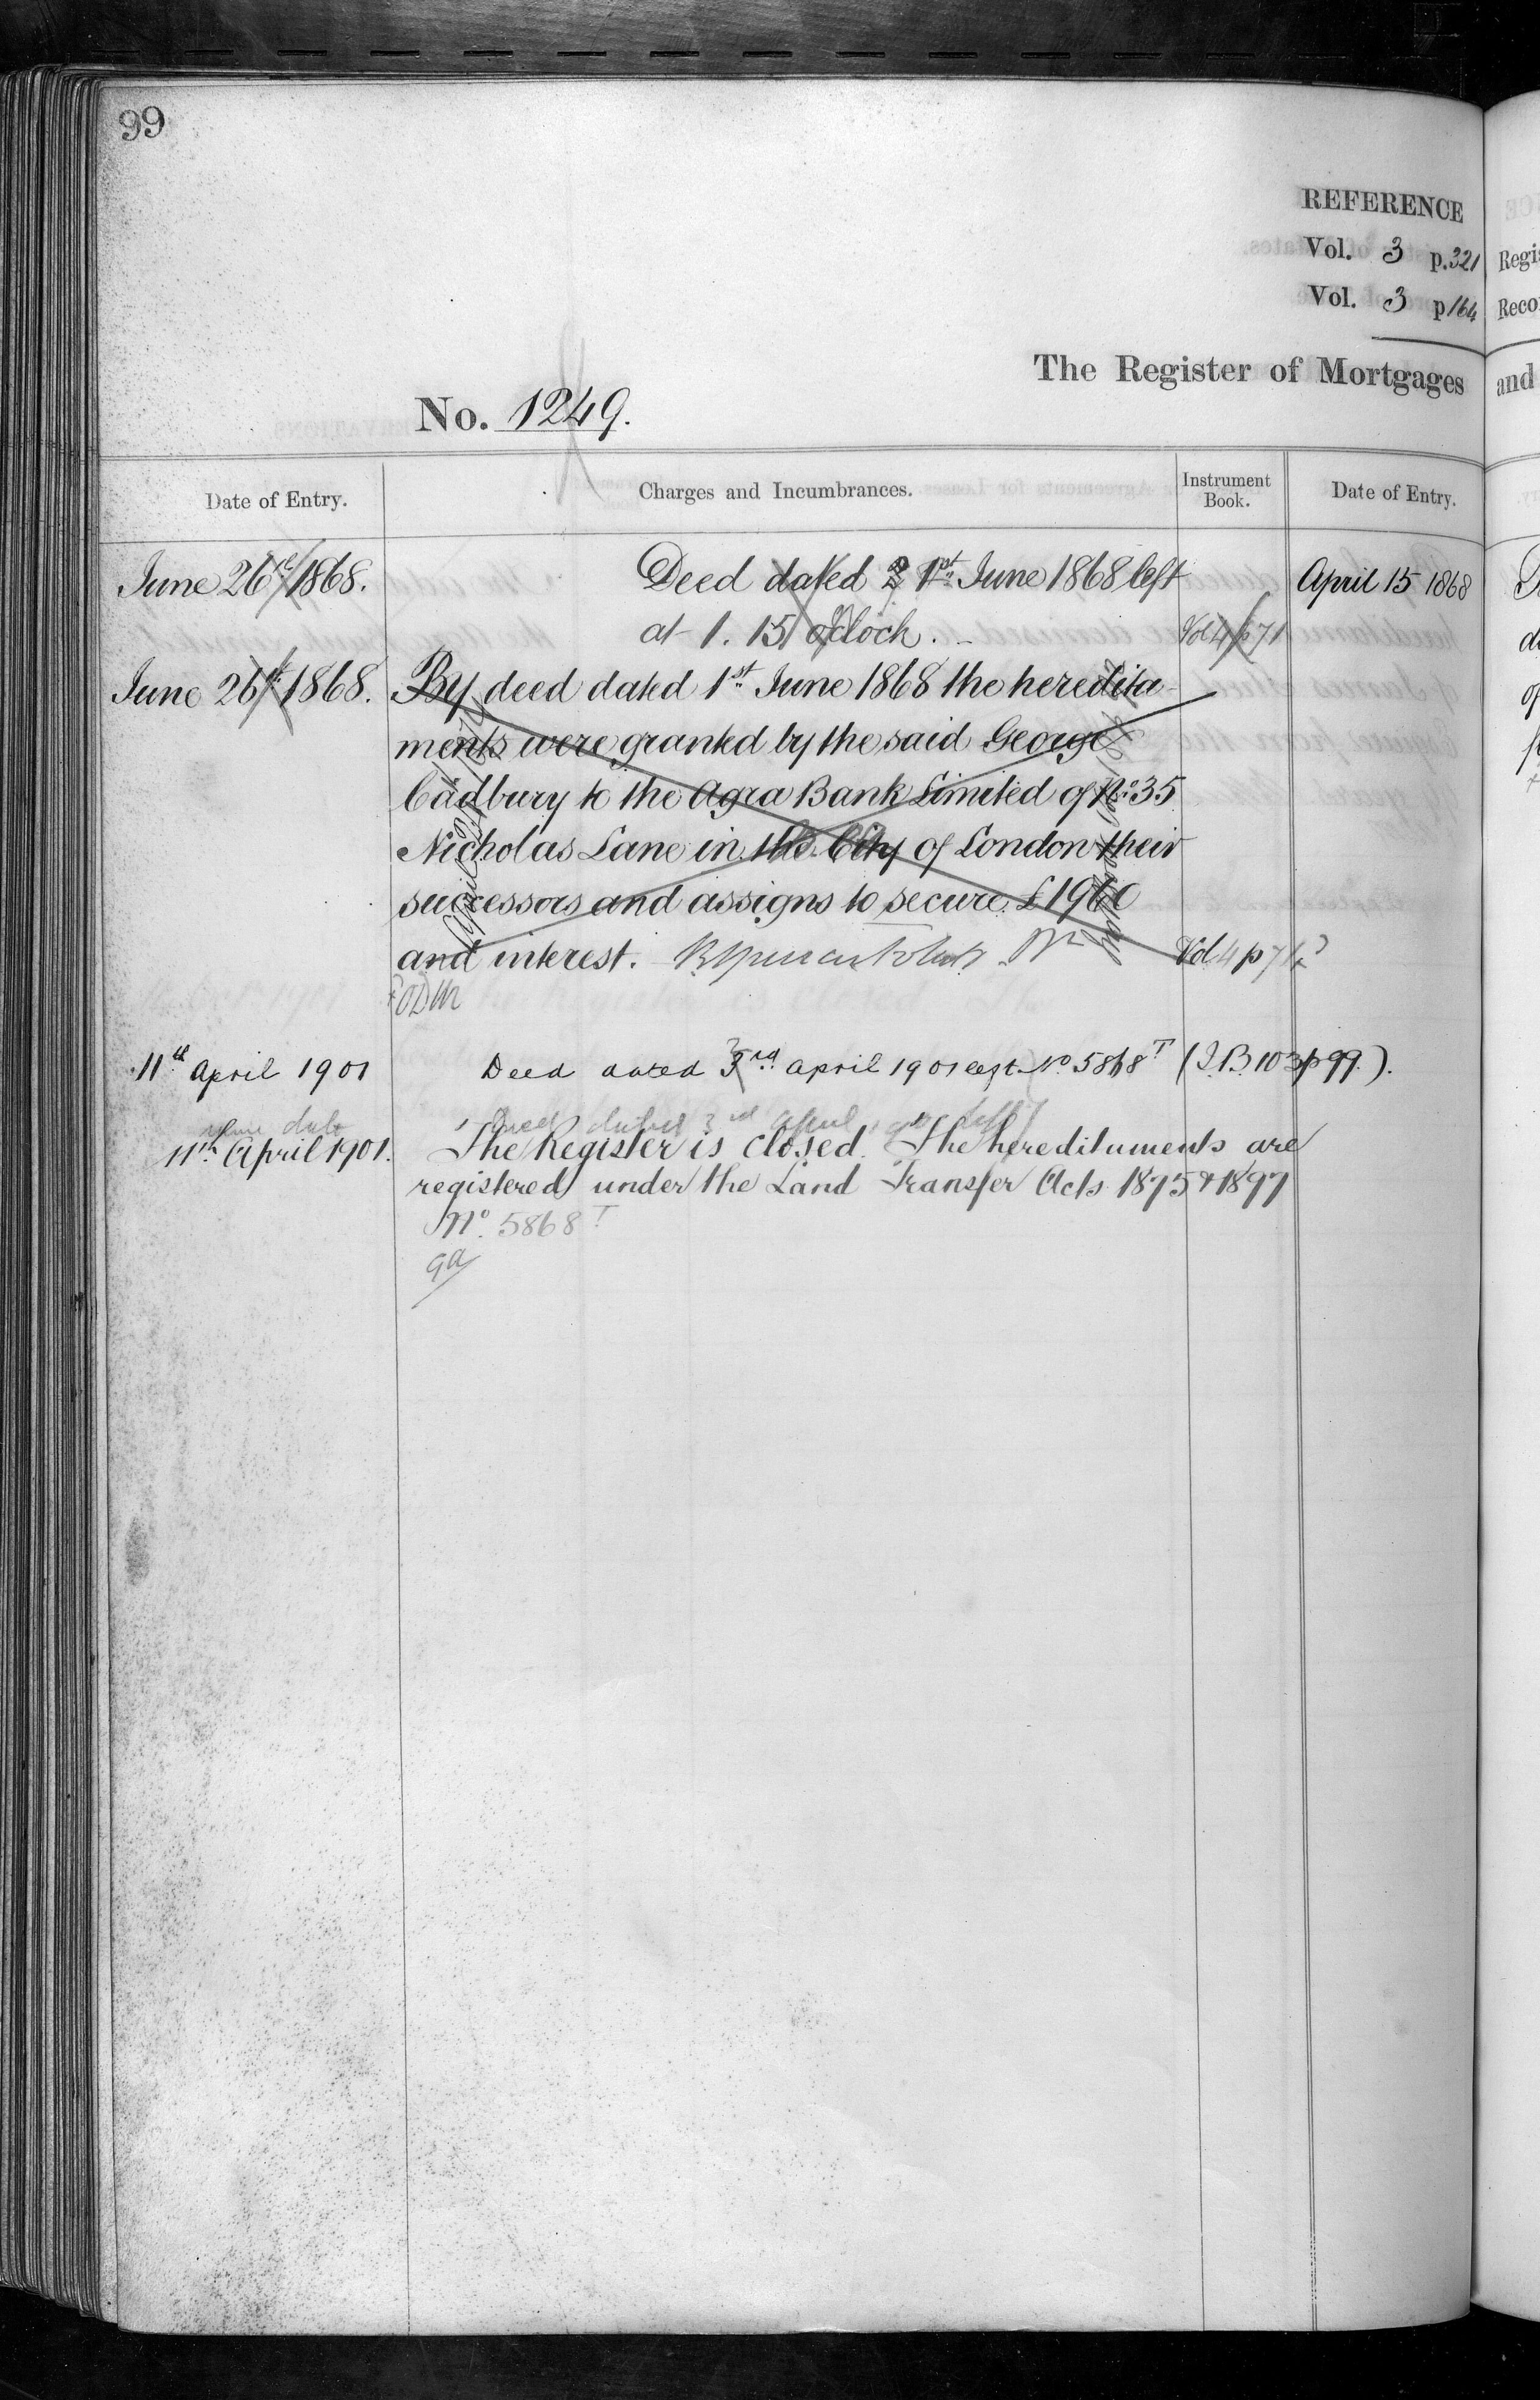 99
REFERENCE
Vol. 3 p.321
Vol. 3 p164
The Register of Mortgages
No. 1249.
Date of Entry.
Charges and Incumbrances.
Instrument Book.
Date of Entry.
June 26th 1868. Deed dated 1st June 1868 left April 15 1868
at 1. 15 o'clock. Vol 4 p 71
June 26th 1868. By deed dated 1st June 1868 the heredita-
ments were granted by the said George
Cadbury to the Agra Bank Limited of No. 35
Nicholas Lane in the City of London their
successors and assigns to secure £1960
and interest. Vol 4 p 71
11th April 1901 Deed dated 3rd April 1901 No 5868T (I.B. 103 p 99.).
same date Deed dated 3rd April left
11th April 1901. The Register is closed. The hereditaments are
registered under the Land Transfer Acts 1875 & 1897
No. 5868T
Regis
Reco
and